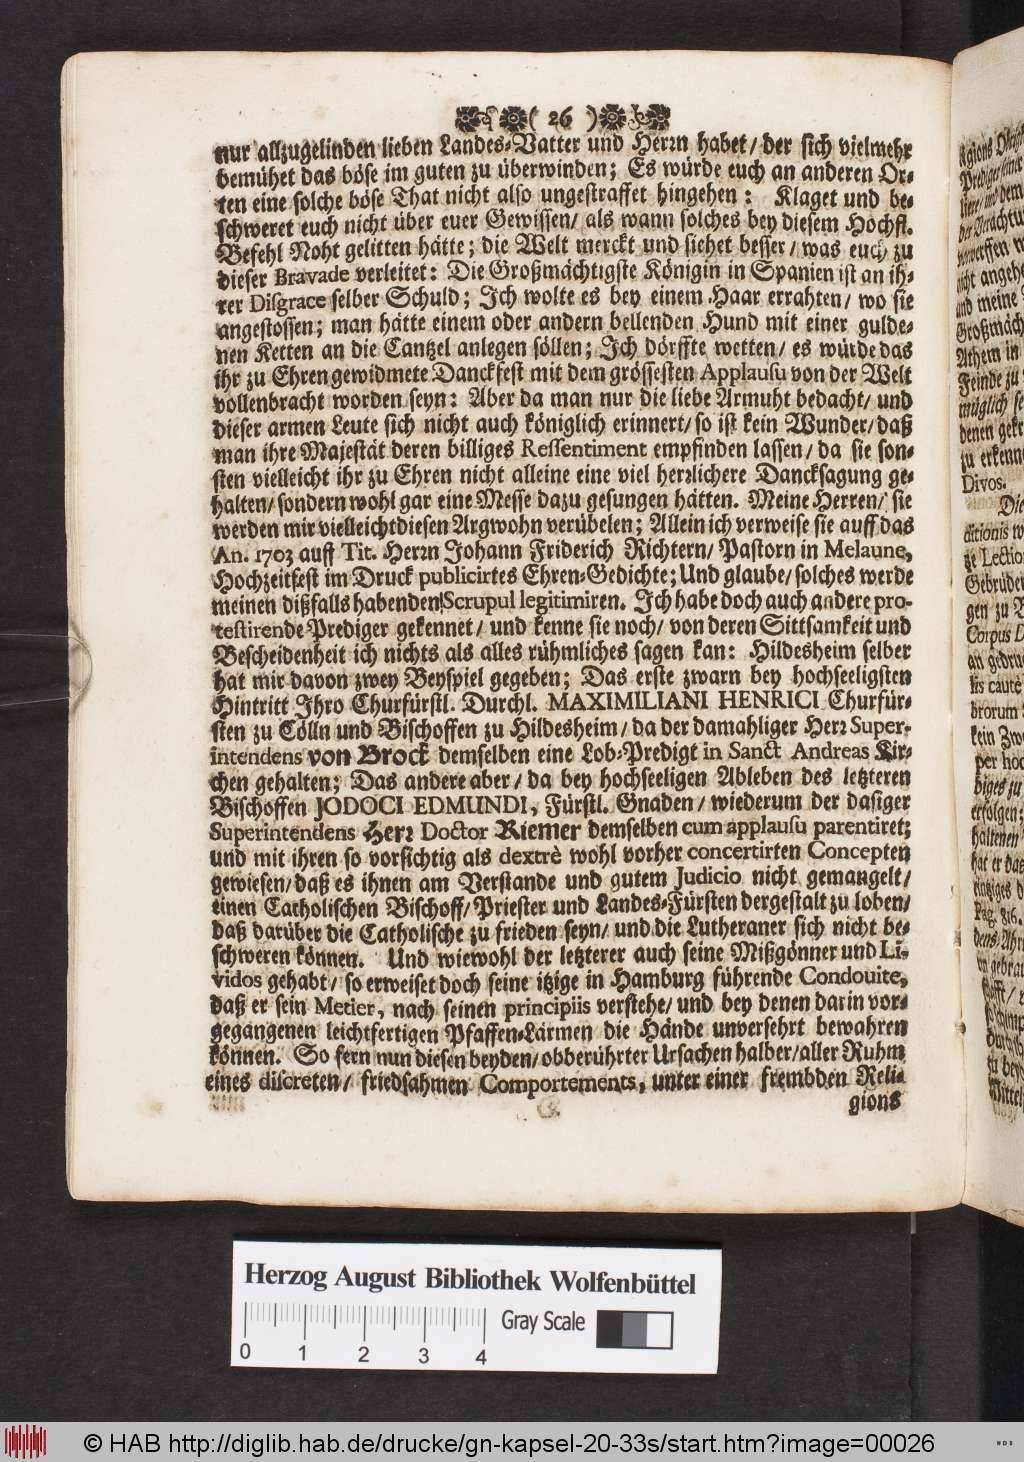 ( 26 )
nur allzugelinden lieben Landes-Vatter und Herrn habet/ der sich vielmehr
bemühet das böse im guten zu überwinden; Es würde euch an anderen Or-
ten eine solche böse That nicht also ungestraffet hingehen: Klaget und be-
schweret euch nicht über euer Gewissen/ als wann solches bey diesem Hochfl.
Befehl Noht gelitten hätte; die Welt merckt und siehet besser/ was euch zu
dieser Bravade verleitet: Die Großmächtigste Königin in Spanien ist an ih-
rer Disgrace selber Schuld; Ich wolte es bey einem Haar errahten/ wo sie
angestossen; man hätte einem oder andern bellenden Hund mit einer gulde-
nen Ketten an die Cantzel anlegen söllen; Ich dörffte wetten/ es würde das
ihr zu Ehren gewidmete Danckfest mit dem grössesten Applausu von der Welt
vollenbracht worden seyn: Aber da man nur die liebe Armuht bedacht/ und
dieser armen Leute sich nicht auch königlich erinnert/ so ist kein Wunder/ daß
man ihre Majestät deren billiges Ressentiment empfinden lassen/ da sie son-
sten vielleicht ihr zu Ehren nicht alleine eine viel herzlichere Dancksagung ge-
halten/ sondern wohl gar eine Messe dazu gesungen hätten. Meine Herren/ sie
werden mir vielleicht diesen Argwohn verübelen; Allein ich verweise sie auff das
An. 1703 auff Tit. Herrn Johann Friderich Richtern/ Pastorn in Melaune,
Hochzeitfest im Druck publicirtes Ehren-Gedichte; Und glaube/ solches werde
meinen dißfalls habenden Scrupul legitimiren. Ich habe doch auch andere pro-
testirende Prediger gekennet/ und kenne sie noch/ von deren Sittsamkeit und
Bescheidenheit ich nichts als alles rühmliches sagen kan: Hildesheim selber
hat mir davon zwey Beyspiel gegeben; Das erste zwarn bey hochseeligsten
Hintritt Ihro Churfürstl. Durchl. MAXIMILIANI HENRICI Churfür-
sten zu Cölln und Bischoffen zu Hildesheim/ da der damahliger Herr Super-
intendens von Brock demselben eine Lob-Predigt in Sanct Andreas Kir-
chen gehalten; Das andere aber/ da bey hochseeligen Ableben des letzteren
Bischoffen JODOCI EDMUNDI, Fürstl. Gnaden/ wiederum der dasiger
Superintendens Herr Doctor Riemer demselben cum applausu parentiret;
und mit ihren so vorsichtig als dextrè wohl vorher concertirten Concepten
gewiesen/ daß es ihnen am Verstande und gutem Judicio nicht gemangelt/
einen Catholischen Bischoff/ Priester und Landes-Fürsten dergestalt zu loben/
daß darüber die Catholische zu frieden seyn/ und die Lutheraner sich nicht be-
schweren können. Und wiewohl der letzterer auch seine Mißgönner und Li-
vidos gehabt/ so erweiset doch seine itzige in Hamburg führende Condouite,
daß er sein Metier, nach seinen principiis verstehe/ und bey denen darin vor-
gegangenen leichtfertigen Pfaffen-Lärmen die Hände unversehrt bewahren
können. So fern nun diesen beyden/ obberührter Ursachen halber/ aller Ruhm
eines discreten/ friedsahmen Comportements, unter einer frembden Reli-
gions
Herzog August Bibliothek Wolfenbüttel
0 1 2 3 4
Gray Scale
© HAB http://diglib.hab.de/drucke/gn-kapsel-20-33s/start.htm?image=00026